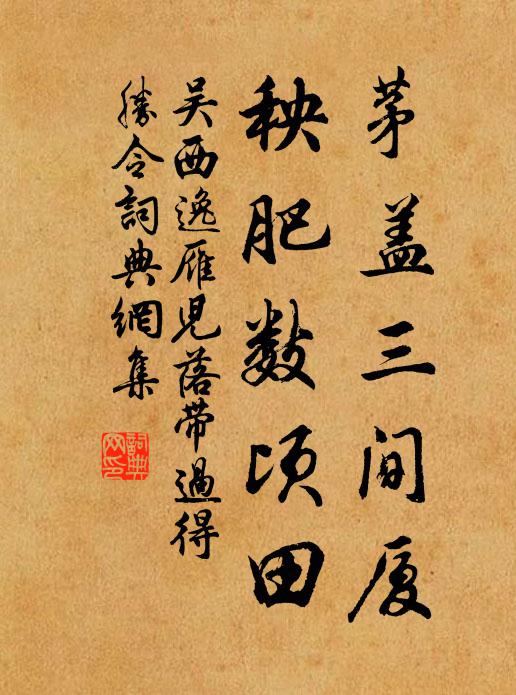 茅盖三间厦
秧肥数顷田
吴西逸雁儿落带過得
勝令詞典網集
詞典网印